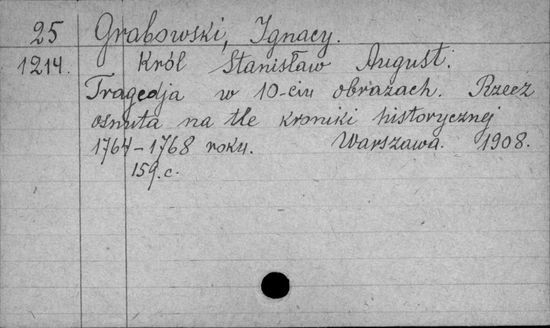 25 Grabowski, Ignacy.
1214. Król Stanisław August.
Tragedja w 10-ciu obrazach. Rzecz
osnuta na tle kroniki historycznej
1764-1768 roku. Warszawa. 1908.
159 c.